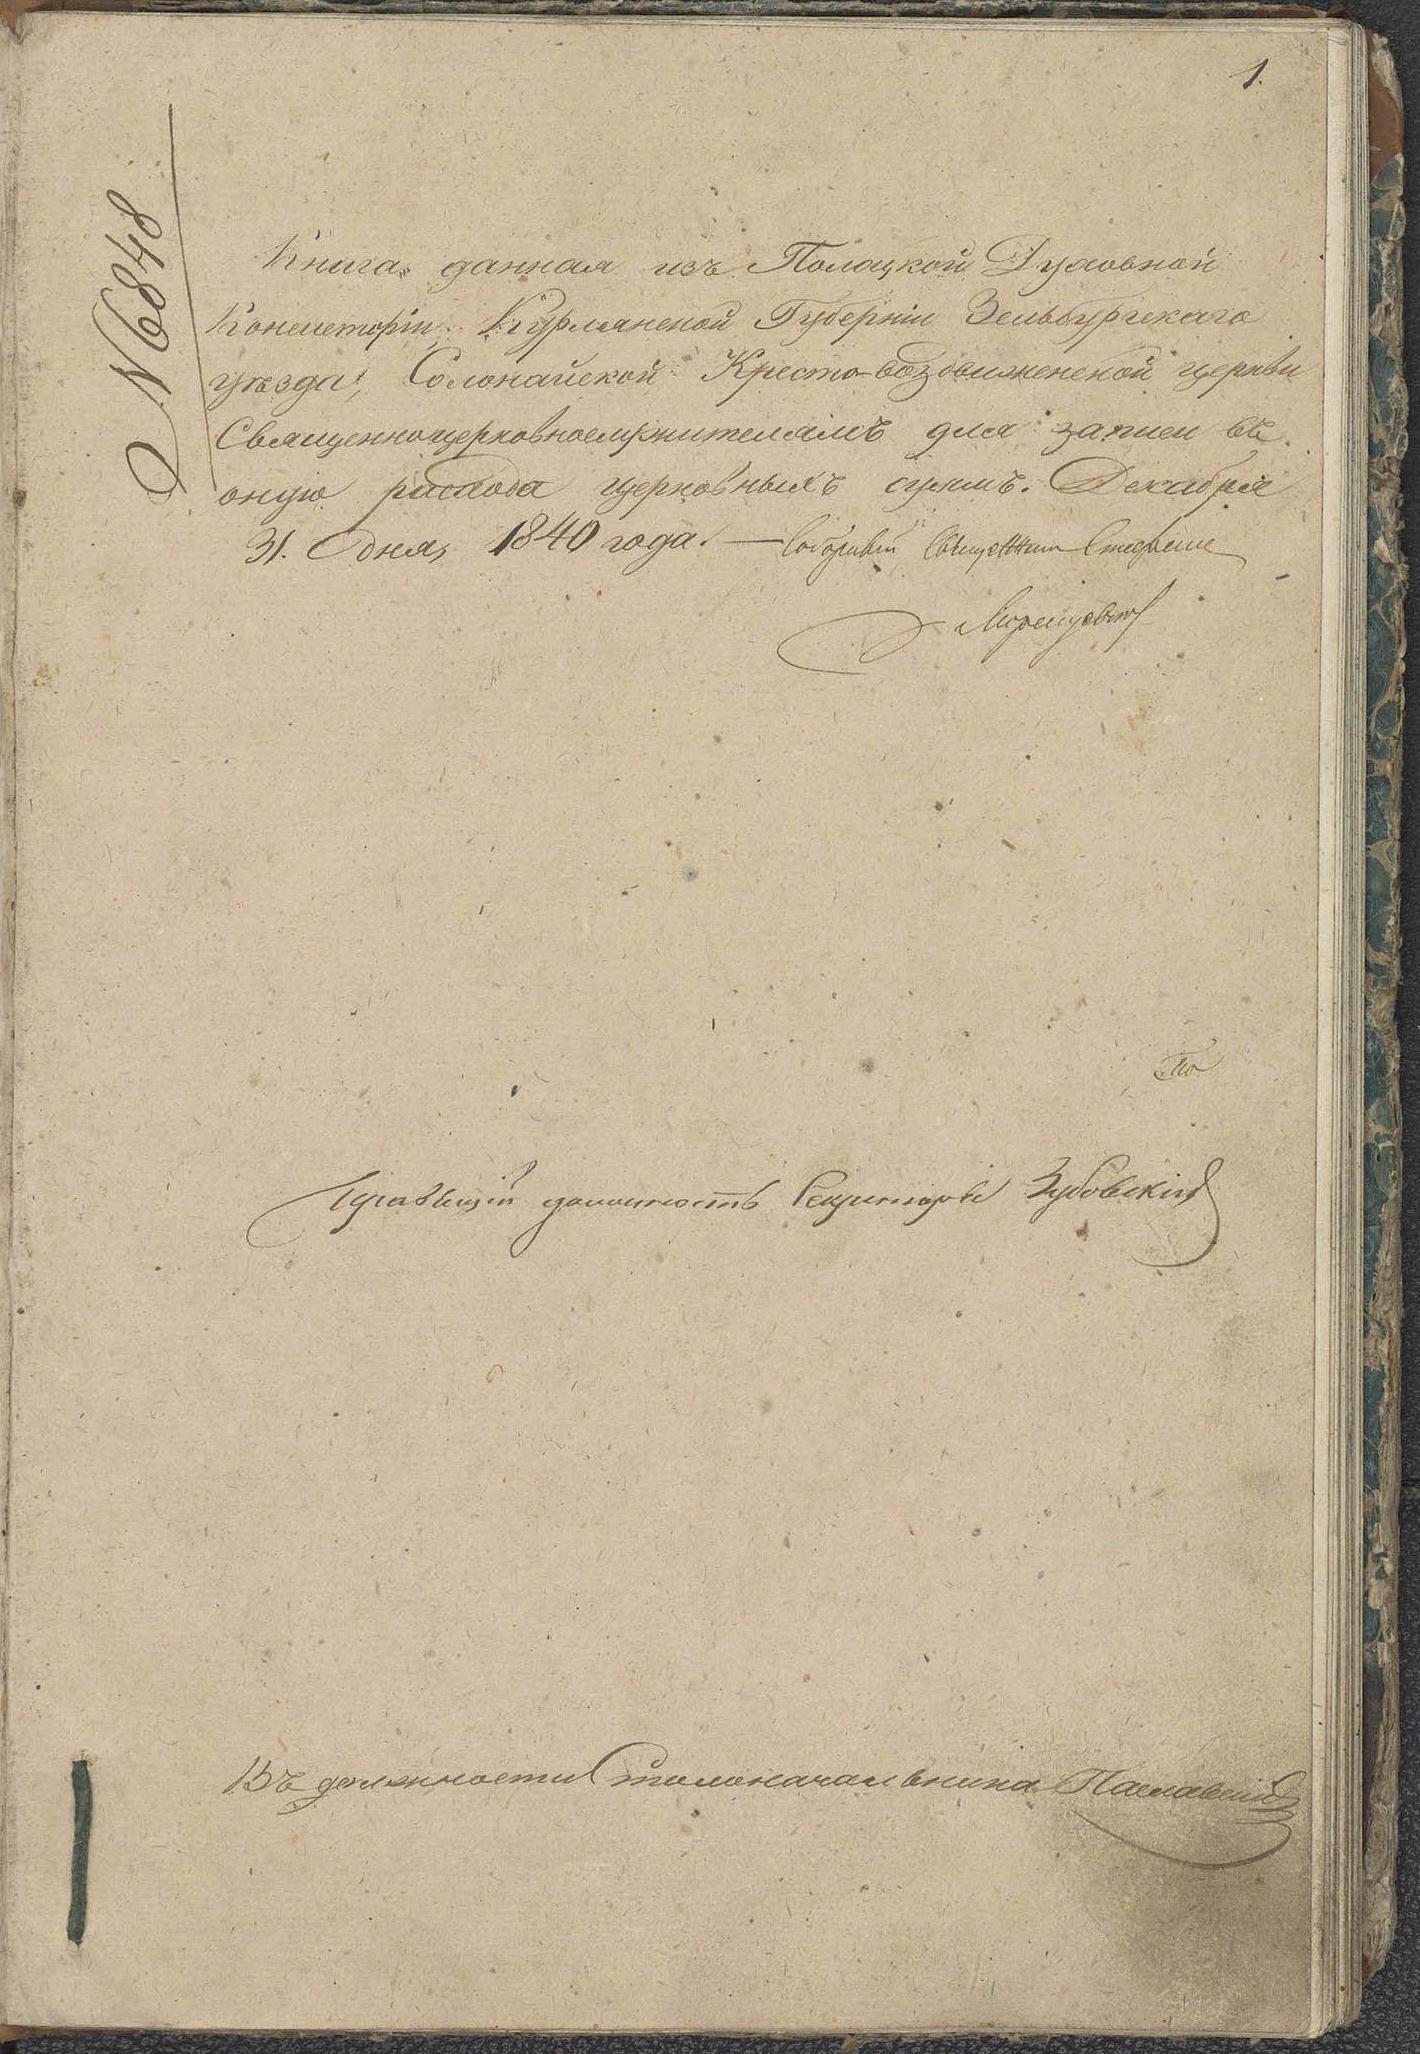 1.
№ 6848
Книга данная изъ Полоцкой Духовной
Консисторіи Курлянской Губерніи Зельбургскаго
уѣзда, Солонайской Кресто-воздвиженской церкви
Священноцерковнослужителямъ для записи въ
оную расхода церковныхъ суммъ. Декабря
31. дня, 1840 года. — Соборный Священникъ Стефанъ
Правящій должность Секретаря Зубовскій
Въ должности Столоначальника